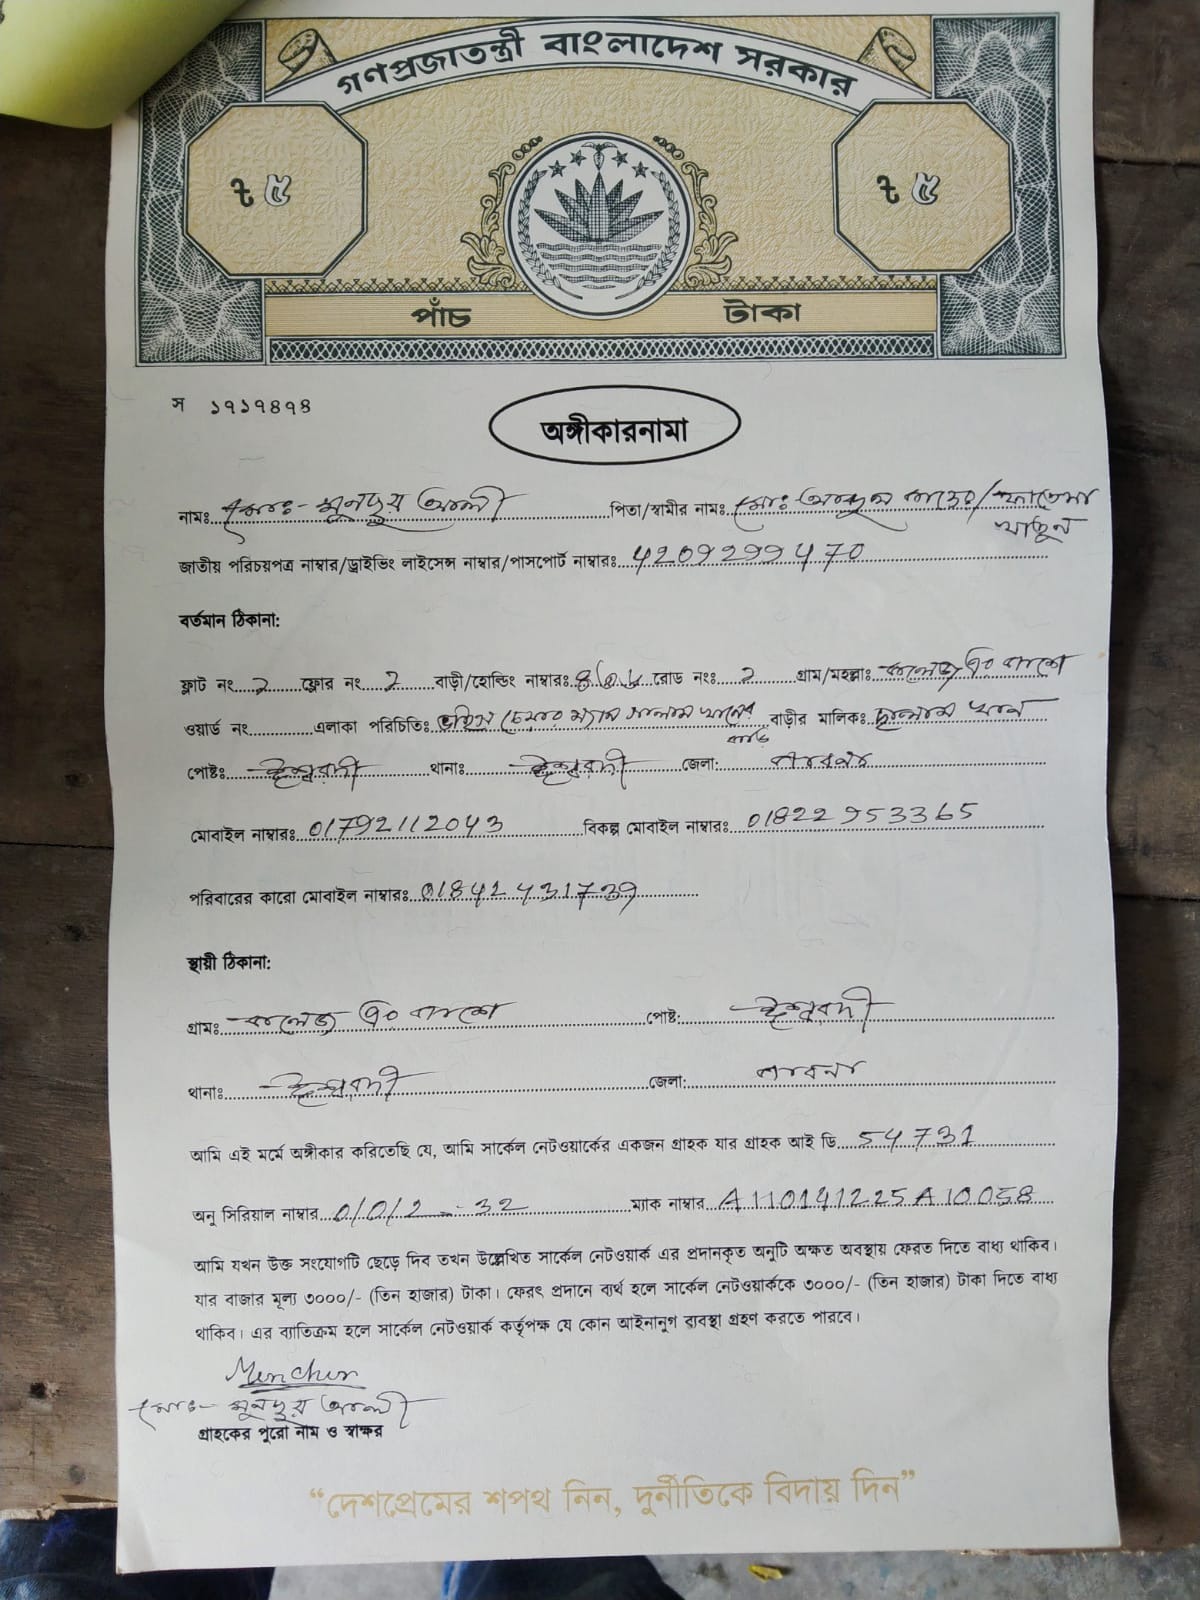 গণপ্রজাতন্ত্রী বাংলাদেশ সরকার
৳ ৫ ৳ ৫
পাঁচ টাকা
স ১৭১৭৪৭৪
অঙ্গীকারনামা
নামঃ মোঃ- মুনছুর আলী পিতা/স্বামীর নামঃ মোঃ আব্দুল /ফাতেমা
খাতুন
জাতীয় পরিচয়পত্র নাম্বার/ড্রাইভিং লাইসেন্স নাম্বার/পাসপোর্ট নাম্বারঃ 4209299470
বর্তমান ঠিকানা:
ফ্লাট নং 2 ফ্লোর নং 2 বাড়ী/হোল্ডিং নাম্বারঃ রোড নংঃ 2 গ্রাম/মহল্লাঃ কলেজ
ওয়ার্ড নং এলাকা পরিচিতিঃ চেয়ার ম্যান সালাম খানের বাড়ীর মালিক: ছালাম খান
বাড়ি
পোষ্টঃ ঈশ্বরদী থানাঃ ঈশ্বরদী জেলা: পাবনা
মোবাইল নাম্বারঃ 01792112043 বিকল্প মোবাইল নাম্বারঃ 01822953365
পরিবারের কারো মোবাইল নাম্বারঃ 01842431739
স্থায়ী ঠিকানা:
গ্রামঃ কলেজ পোষ্ট: ঈশ্বরদী
থানাঃ ঈশ্বরদী জেলা: পাবনা
আমি এই মর্মে অঙ্গীকার করিতেছি যে, আমি সার্কেল নেটওয়ার্কের একজন গ্রাহক যার গ্রাহক আই ডি 54731
অনু সিরিয়াল নাম্বার 0/0/2 32 ম্যাক নাম্বার A110141225A10058
আমি যখন উক্ত সংযোগটি ছেড়ে দিব তখন উল্লেখিত সার্কেল নেটওয়ার্ক এর প্রদানকৃত অনুটি অক্ষত অবস্থায় ফেরত দিতে বাধ্য থাকিব।
যার বাজার মূল্য ৩০০০/- (তিন হাজার) টাকা। ফেরৎ প্রদানে ব্যর্থ হলে সার্কেল নেটওয়ার্ককে ৩০০০/- (তিন হাজার) টাকা দিতে বাধ্য
থাকিব। এর ব্যাতিক্রম হলে সার্কেল নেটওয়ার্ক কর্তৃপক্ষ যে কোন আইনানুগ ব্যবস্থা গ্রহণ করতে পারবে।
মোঃ- মুনছুর আলী
গ্রাহকের পুরো নাম ও স্বাক্ষর
“দেশপ্রেমের শপথ নিন, দুর্নীতিকে বিদায় দিন”